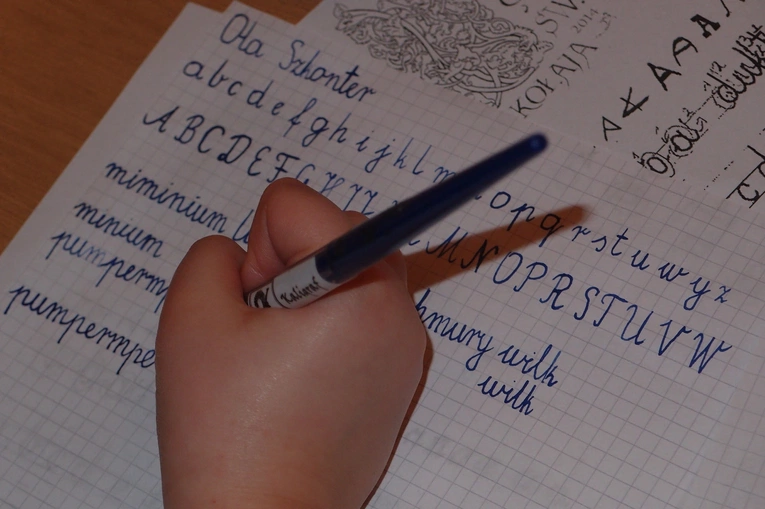 Ola Szkonter
a b c d e f g h i j k l m o p q r s t u w y z
A B C D E F G H I J M N O P R S T U V W
miminium
minium
pumperm
pumpermpe
hmury wilk
wilk
Kaligraf
2014
KOŁAJA
A A A A